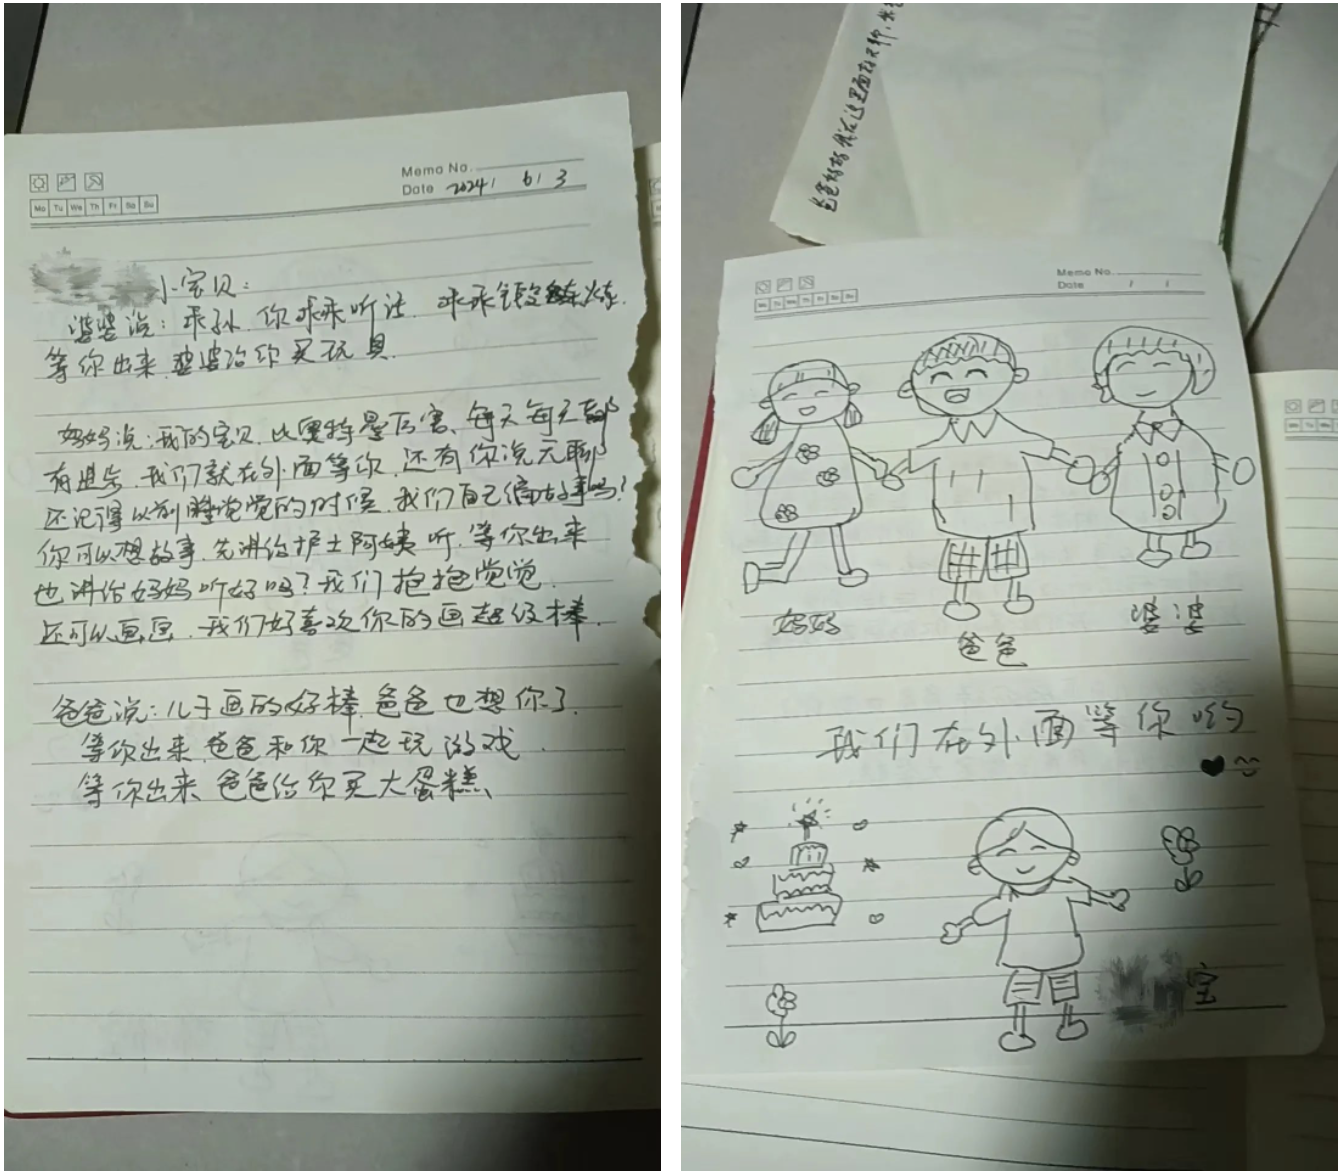 Memo No.
Date 2024/ 6/ 3
Mo Tu We Th Fr Sa Su
小宝贝：
婆婆说：乖孙，你乖乖听话，乖乖锻炼，
等你出来，婆婆给你买玩具.
妈妈说：我的宝贝，比奥特曼厉害、每天每天都
有进步，我们就在外面等你，还有你说无聊
还记得以前睡觉觉的时候，我们自己编故事吗？
你可以想故事，先讲给护士阿姨听，等你出来
也讲给妈妈听好吗？我们抱抱觉觉.
还可以画画，我们好喜欢你的画超级棒.
爸爸说：儿子画的好棒，爸爸也想你了.
等你出来，爸爸和你一起玩游戏.
等你出来，爸爸给你买大蛋糕
爸爸妈妈我在这里面
Memo No.
Date / /
Mo Tu We Th Fr Sa Su
妈妈
爸爸
婆婆
我们在外面等你哟
宝